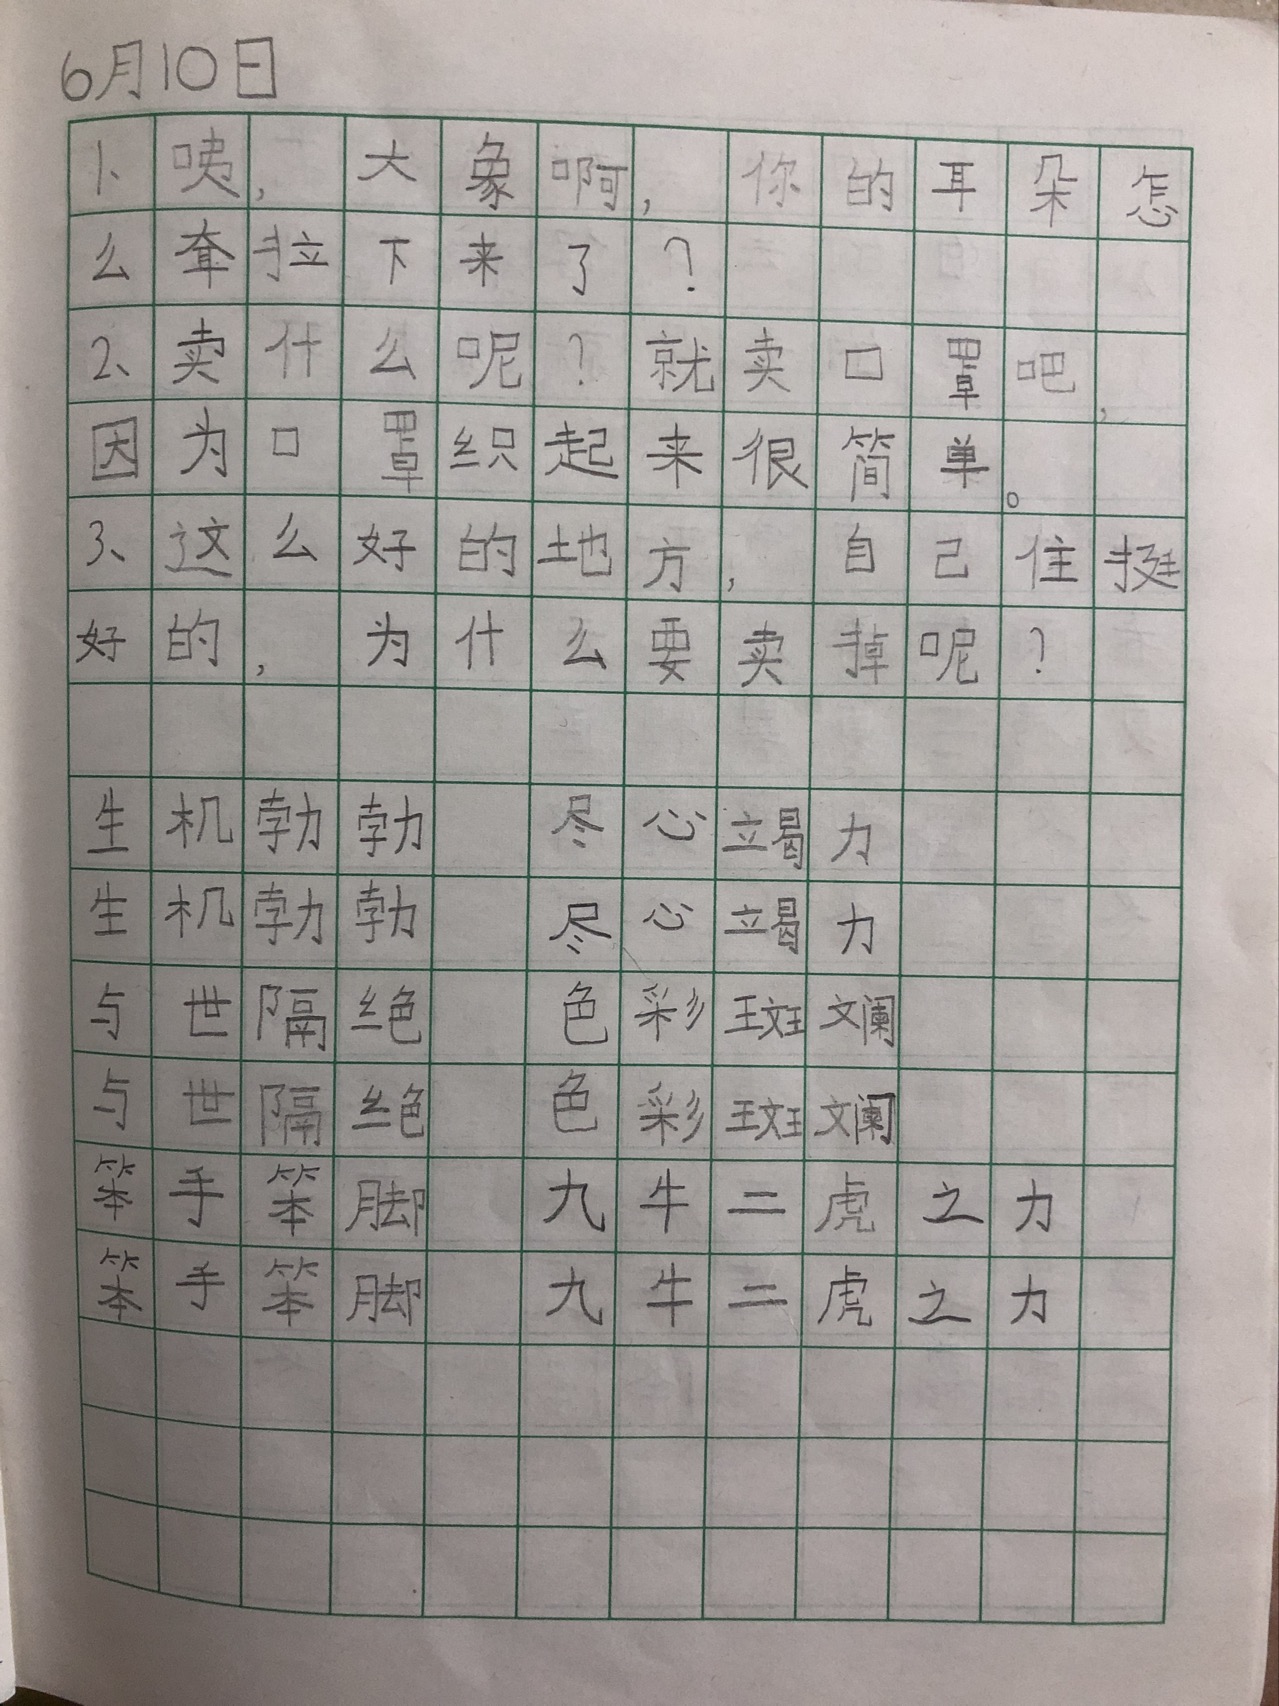 6月10日
1、咦,大象啊,你的耳朵怎
么耷拉下来了?
2、卖什么呢?就卖口罩吧,
因为口罩织起来很简单。
3、这么好的地方,自己住挺
好的,为什么要卖掉呢?
生机勃勃 尽心竭力
生机勃勃 尽心竭力
与世隔绝 色彩斑斓
与世隔绝 色彩斑斓
笨手笨脚 九牛二虎之力
笨手笨脚 九牛二虎之力